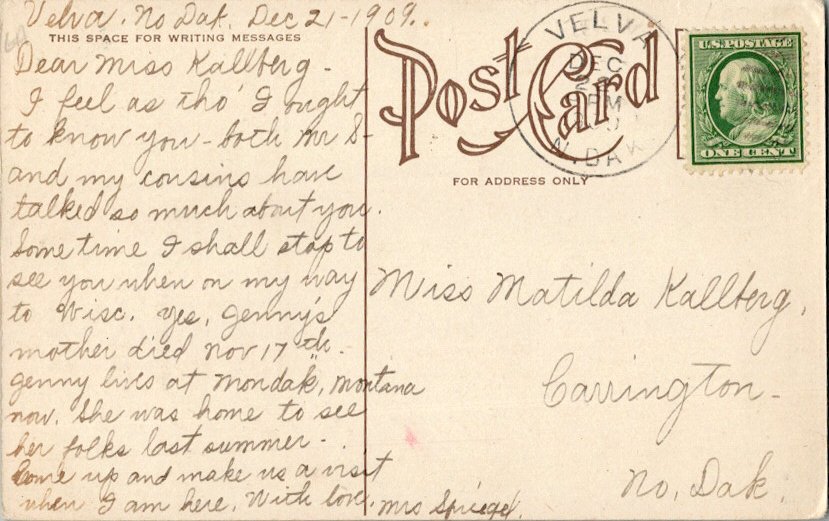 Velva. No Dak. Dec 21-1909..
THIS SPACE FOR WRITING MESSAGES
Dear Miss Kallberg -
I feel as tho' I ought
to know you - both Mr S-
and my cousins have
talked so much about you.
Some time I shall stop to
see you when on my way
to Wisc. Yes, Genny's
mother died Nov 17th.
Genny lives at Mondak, Montana
now. She was home to see
her folks last summer -
Come up and make us a visit
when I am here. With love, Mrs Spriegel.
Post Card
FOR ADDRESS ONLY
VELVA
DEC
PM
N. DAK.
U.S. POSTAGE
ONE CENT
Miss Matilda Kallberg,
Carrington -
No. Dak.